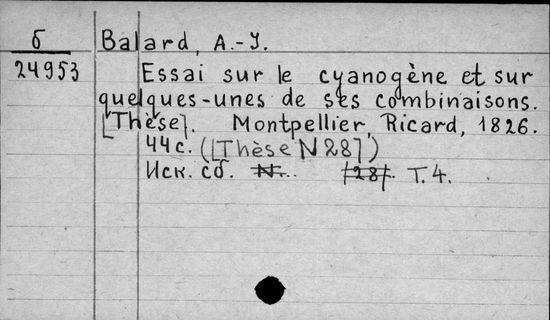 б Balard, A.-J.
24953 Essai sur le cyanogène et sur
quelques-unes de ses combinaisons.
[Thèse]. Montpellier, Ricard, 1826.
44 с. ([Thèse N 28])
Иск. сб. N... /28/. T. 4.